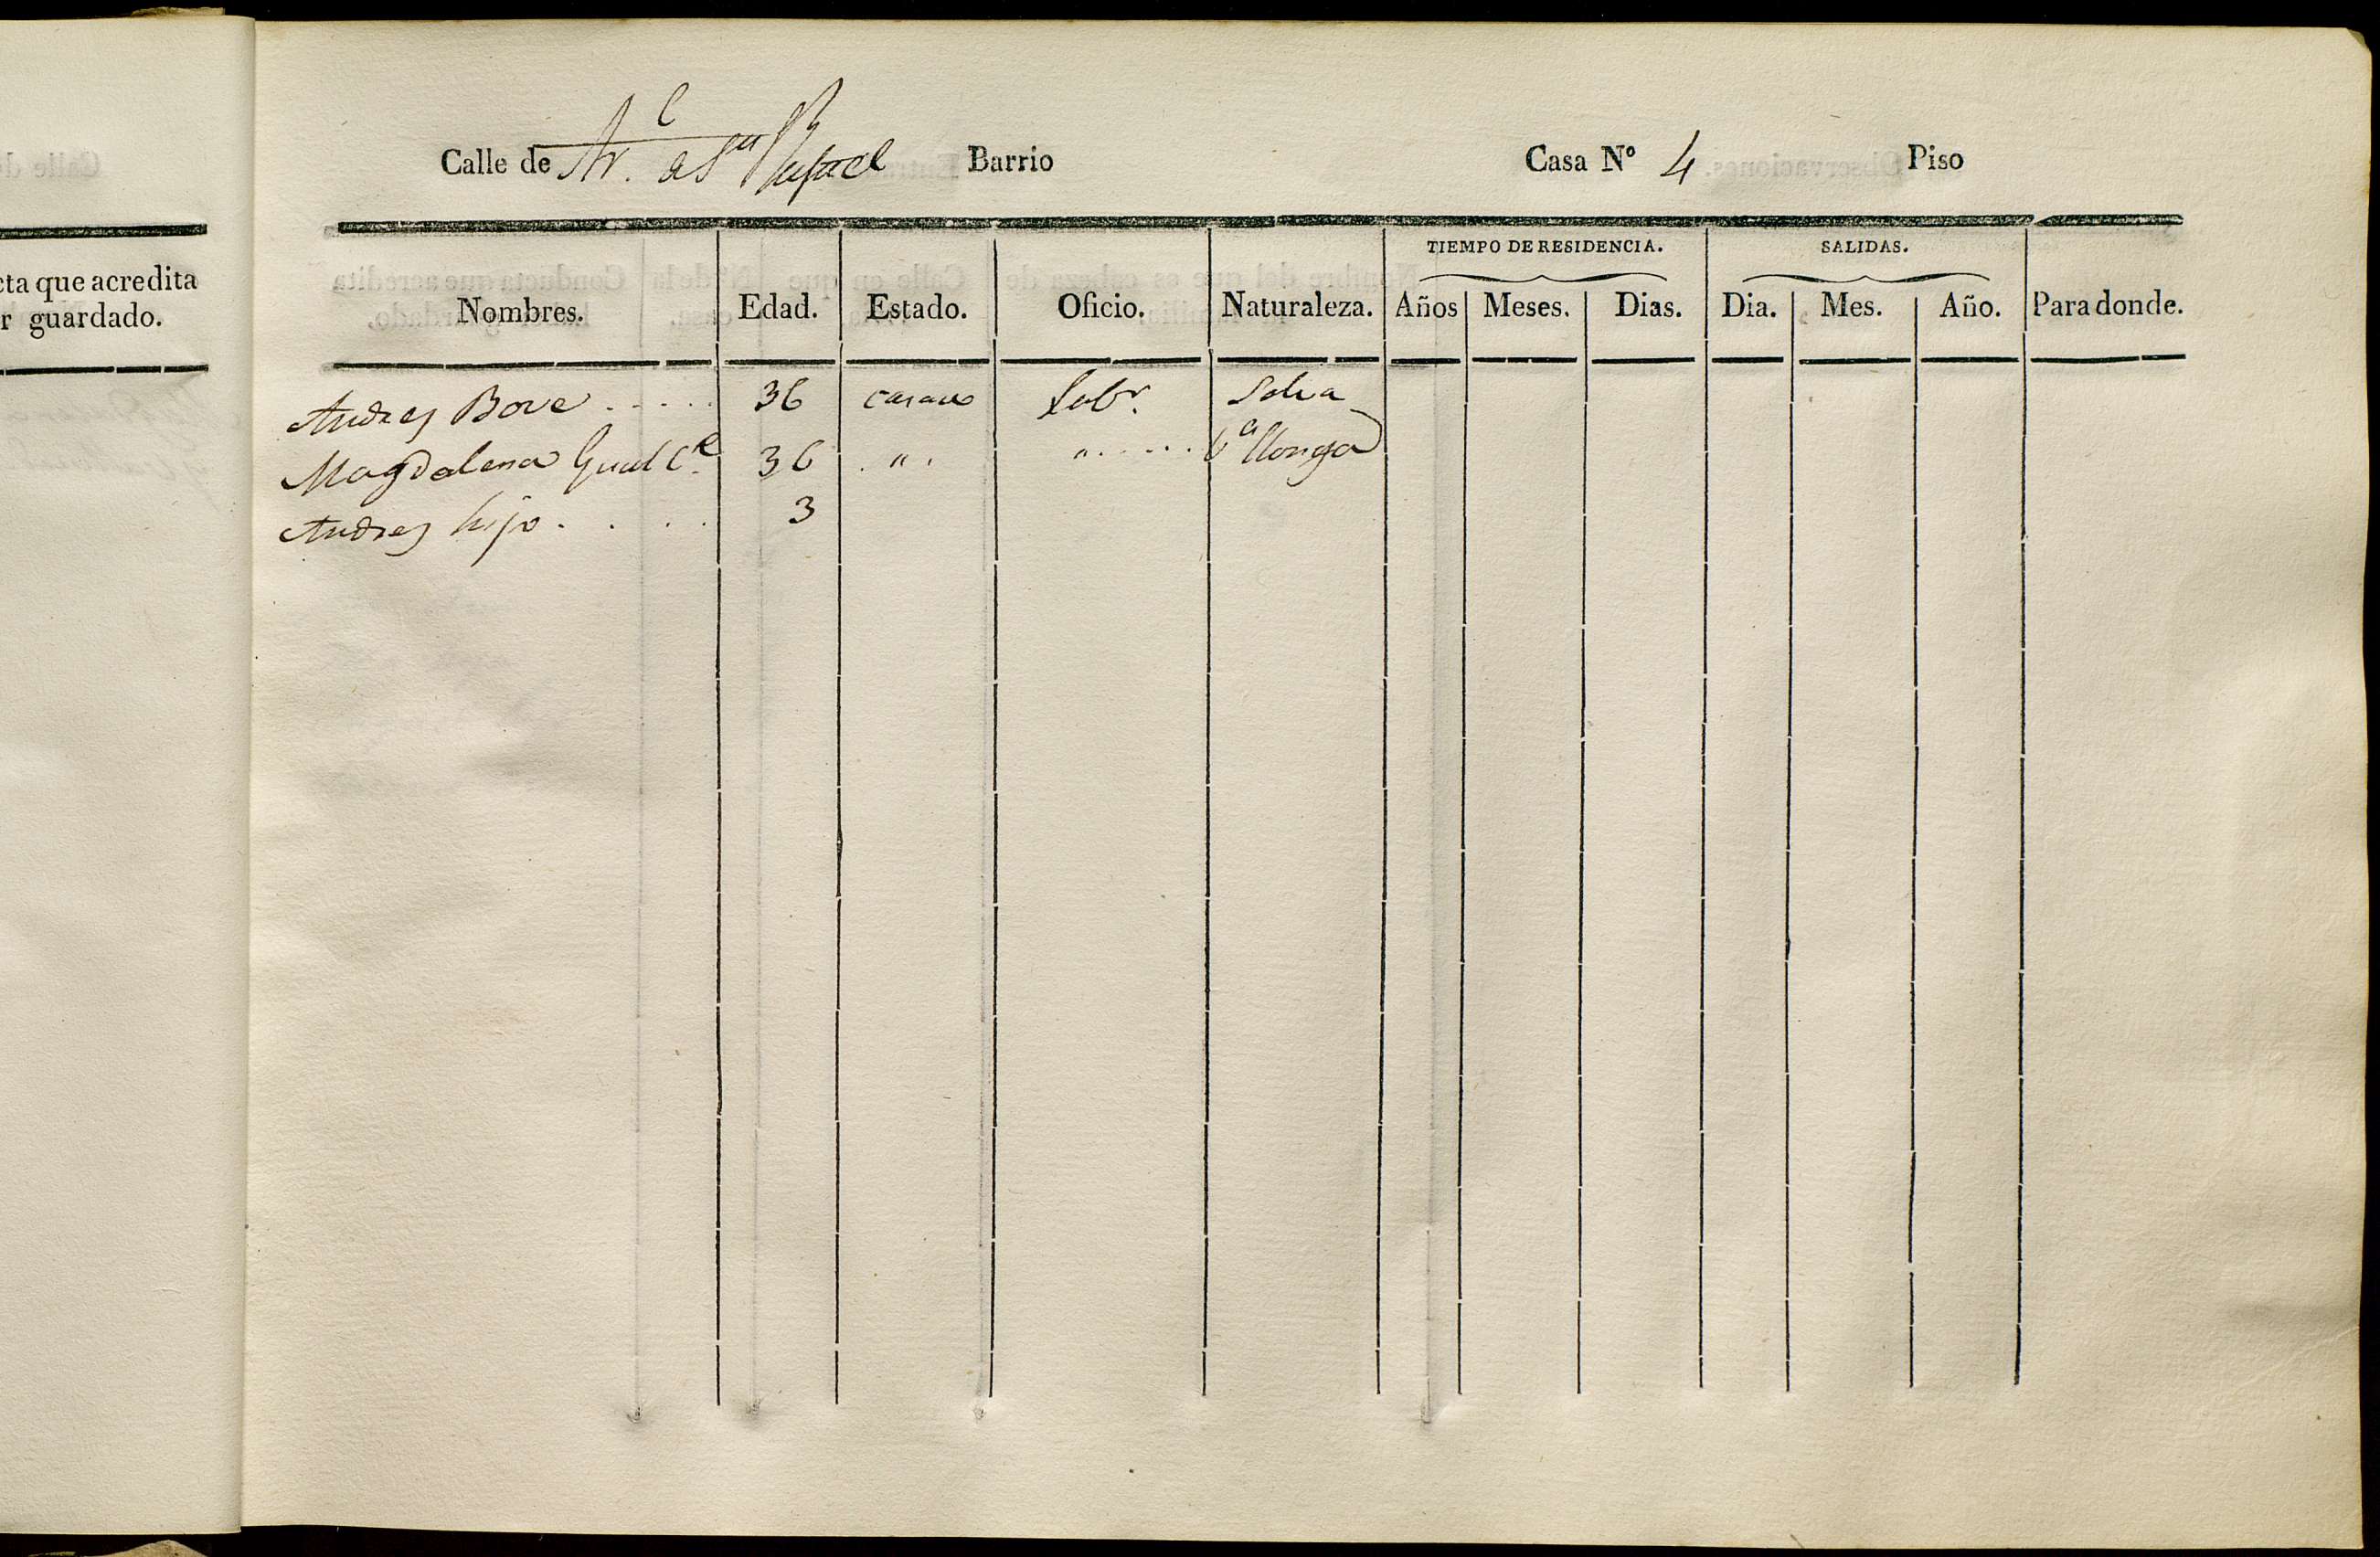 Calle de Ar.e a Sn Rafael Barrio Casa Nº 4 Piso
cta que acredita
r guardado.
TIEMPO DE RESIDENCIA. SALIDAS.
Nombres. Edad. Estado. Oficio. Naturaleza. Años Meses. Dias. Dia. Mes. Año. Para donde.
Andres Bove ..... 36 casado Labr. Selva
Magdalena Gual Ce. 36 . " . " ..... Va llonga
Andres hijo . . . . 3